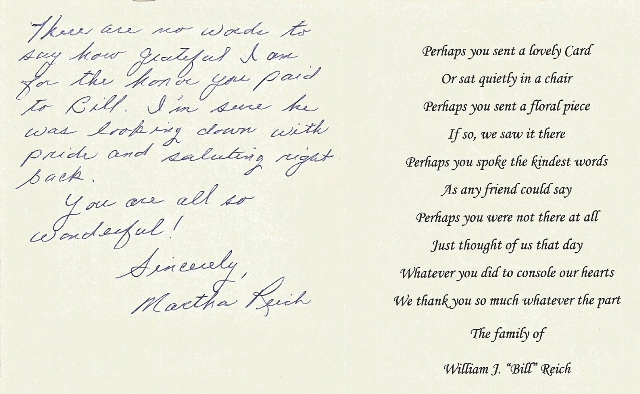 There are no words to
say how grateful I am
for the honor you paid
to Bill. I'm sure he
was looking down with
pride and saluting right
back.
You are all so
wonderful!
Sincerely,
Martha Reich
Perhaps you sent a lovely Card
Or sat quietly in a chair
Perhaps you sent a floral piece
If so, we saw it there
Perhaps you spoke the kindest words
As any friend could say
Perhaps you were not there at all
Just thought of us that day
Whatever you did to console our hearts
We thank you so much whatever the part
The family of
William J. "Bill" Reich